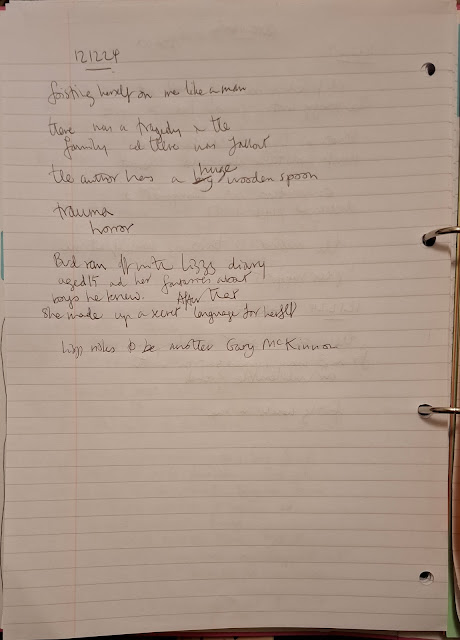 121224
foisting herself on me like a man
there was a tragedy in the
family and there was fallout
the author has a big huge wooden spoon
trauma
horror
Bud ran off with Lizzs diary
aged 15 and her fantasies about
boys he knew. After that
she made up a secret language for herself
Lizz to be another Gary McKinnon